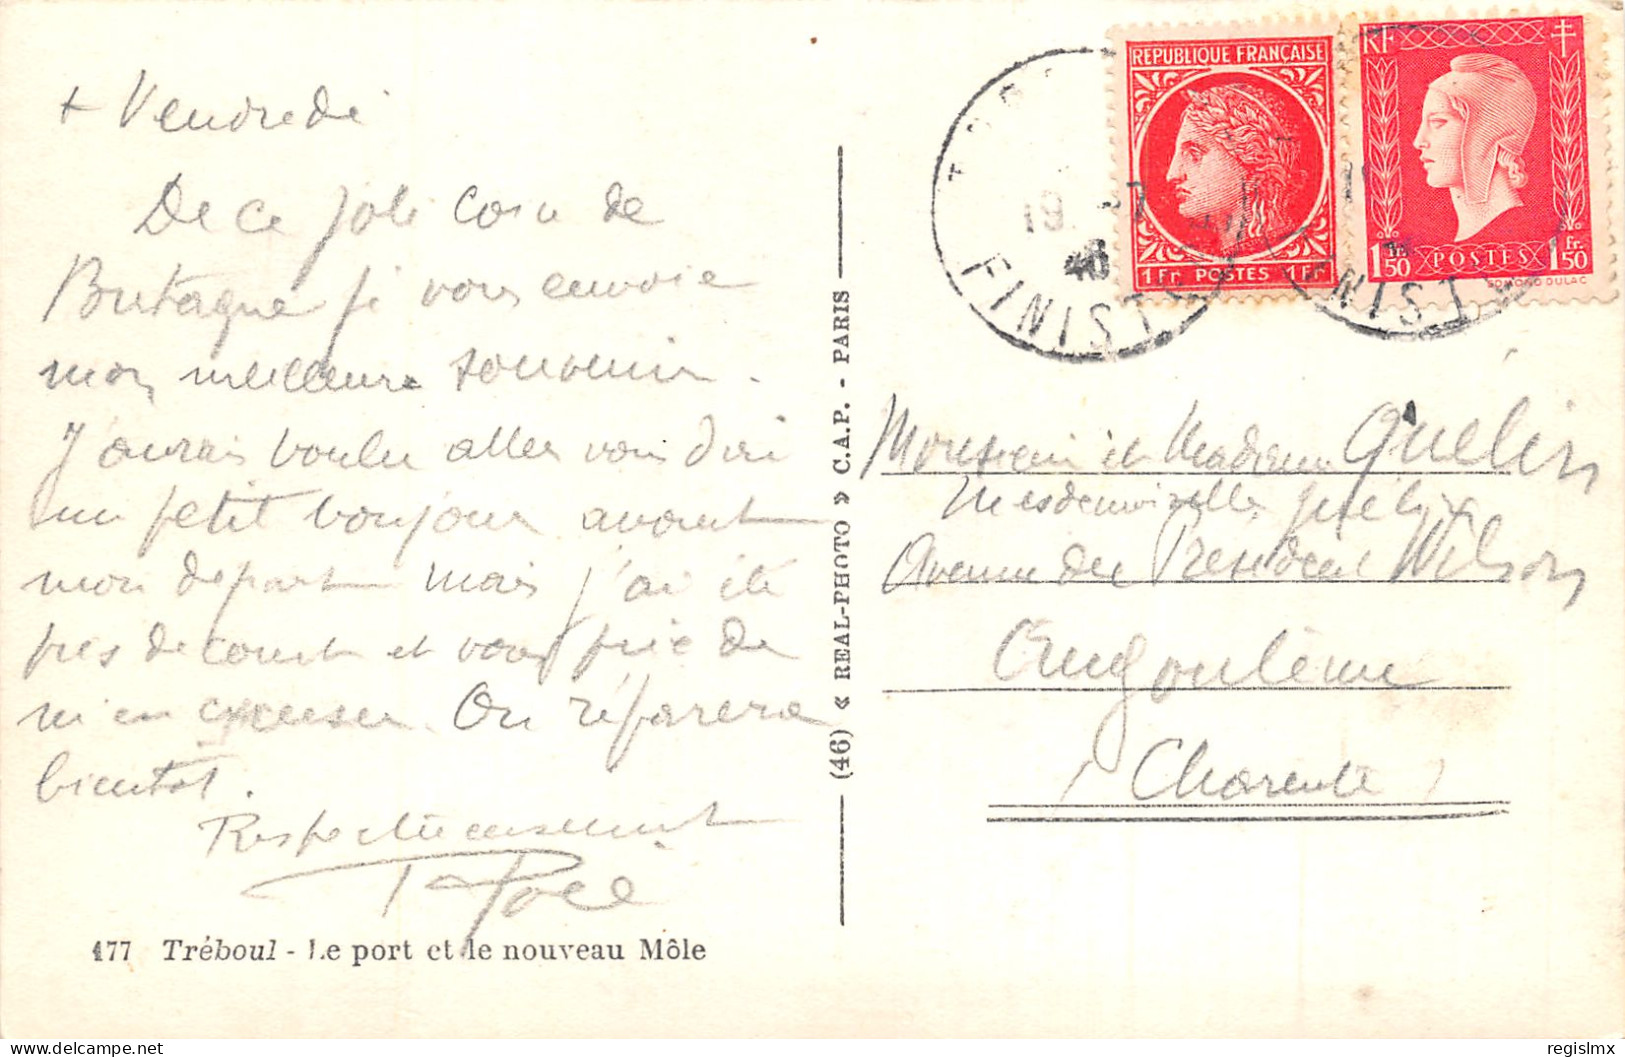 + Vendredi
De ce joli coin de
Bretagne je vous envoie
mon meilleur souvenir.
J'aurais voulu aller vous dire
un petit bonjour avant
mon départ mais j'ai été
pris de court et vous prie de
m'en excuser. On réparera
bientôt.
Respectueusement
177 Tréboul - Le port et le nouveau Môle
(46) « REAL-PHOTO » C.A.P. - PARIS
REPUBLIQUE FRANÇAISE
1 Fr POSTES 1 Fr
RF
1 Fr. 50 POSTES 1 Fr. 50
EDMOND DULAC
19 -7
46
FINIST
NIST
Monsieur et Madame Quélin
Mesdemoiselles Quélin
Avenue du Président Wilson
Angoulême
(Charente)
regislmx